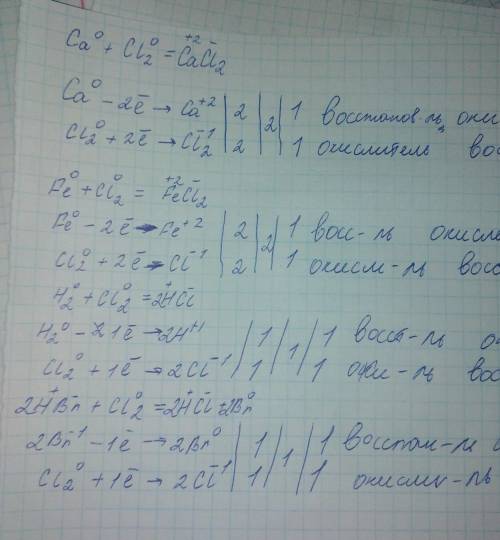 Ca⁰ + Cl₂⁰ = Ca⁺²Cl₂⁻
Ca⁰ - 2ē → Ca⁺² | 2 | 2 | 1 восстанов-ль,
Cl₂⁰ + 2ē → Cl₂⁻¹ | 2 | | 1 окислитель
Fe⁰ + Cl₂⁰ = Fe⁺²Cl₂⁻
Fe⁰ - 2ē → Fe⁺² | 2 | 2 | 1 восс-ль
Cl₂⁰ + 2ē → Cl⁻¹ | 2 | | 1 окисл-ль
H₂⁰ + Cl₂⁰ = 2H⁺Cl⁻
H₂⁰ - 1ē → 2H⁺¹ | 1 | 1 | 1 восст-ль
Cl₂⁰ + 1ē → 2Cl⁻¹ | 1 | | 1 оки-ль
2H⁺Br⁻ + Cl₂⁰ = 2H⁺Cl⁻ + 2Br⁰
2Br⁻¹ - 1ē → 2Br⁰ | 1 | 1 | 1 восстан-ль
Cl₂⁰ + 1ē → 2Cl⁻¹ | 1 | | 1 окисли-ль